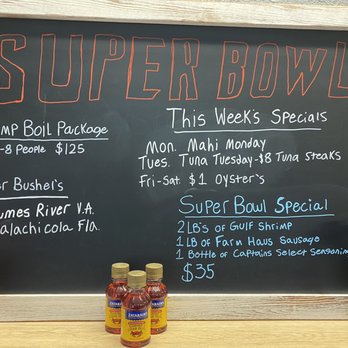 SUPER BOWL
MP BOIL PACKAGE
-8 PEOPLE $125
This Week's Specials
Mon. Mahi Monday
Tues. Tuna Tuesday-$8 Tuna Steaks
Fri-Sat. $1 Oyster's
r Bushel's
umes River V.A.
alachicola Fla.
Super Bowl Special
2 LB's of Gulf Shrimp
1 LB of Farm Haus Sausage
1 Bottle of Captains Select Seasonin
$35
ZATARAIN'S